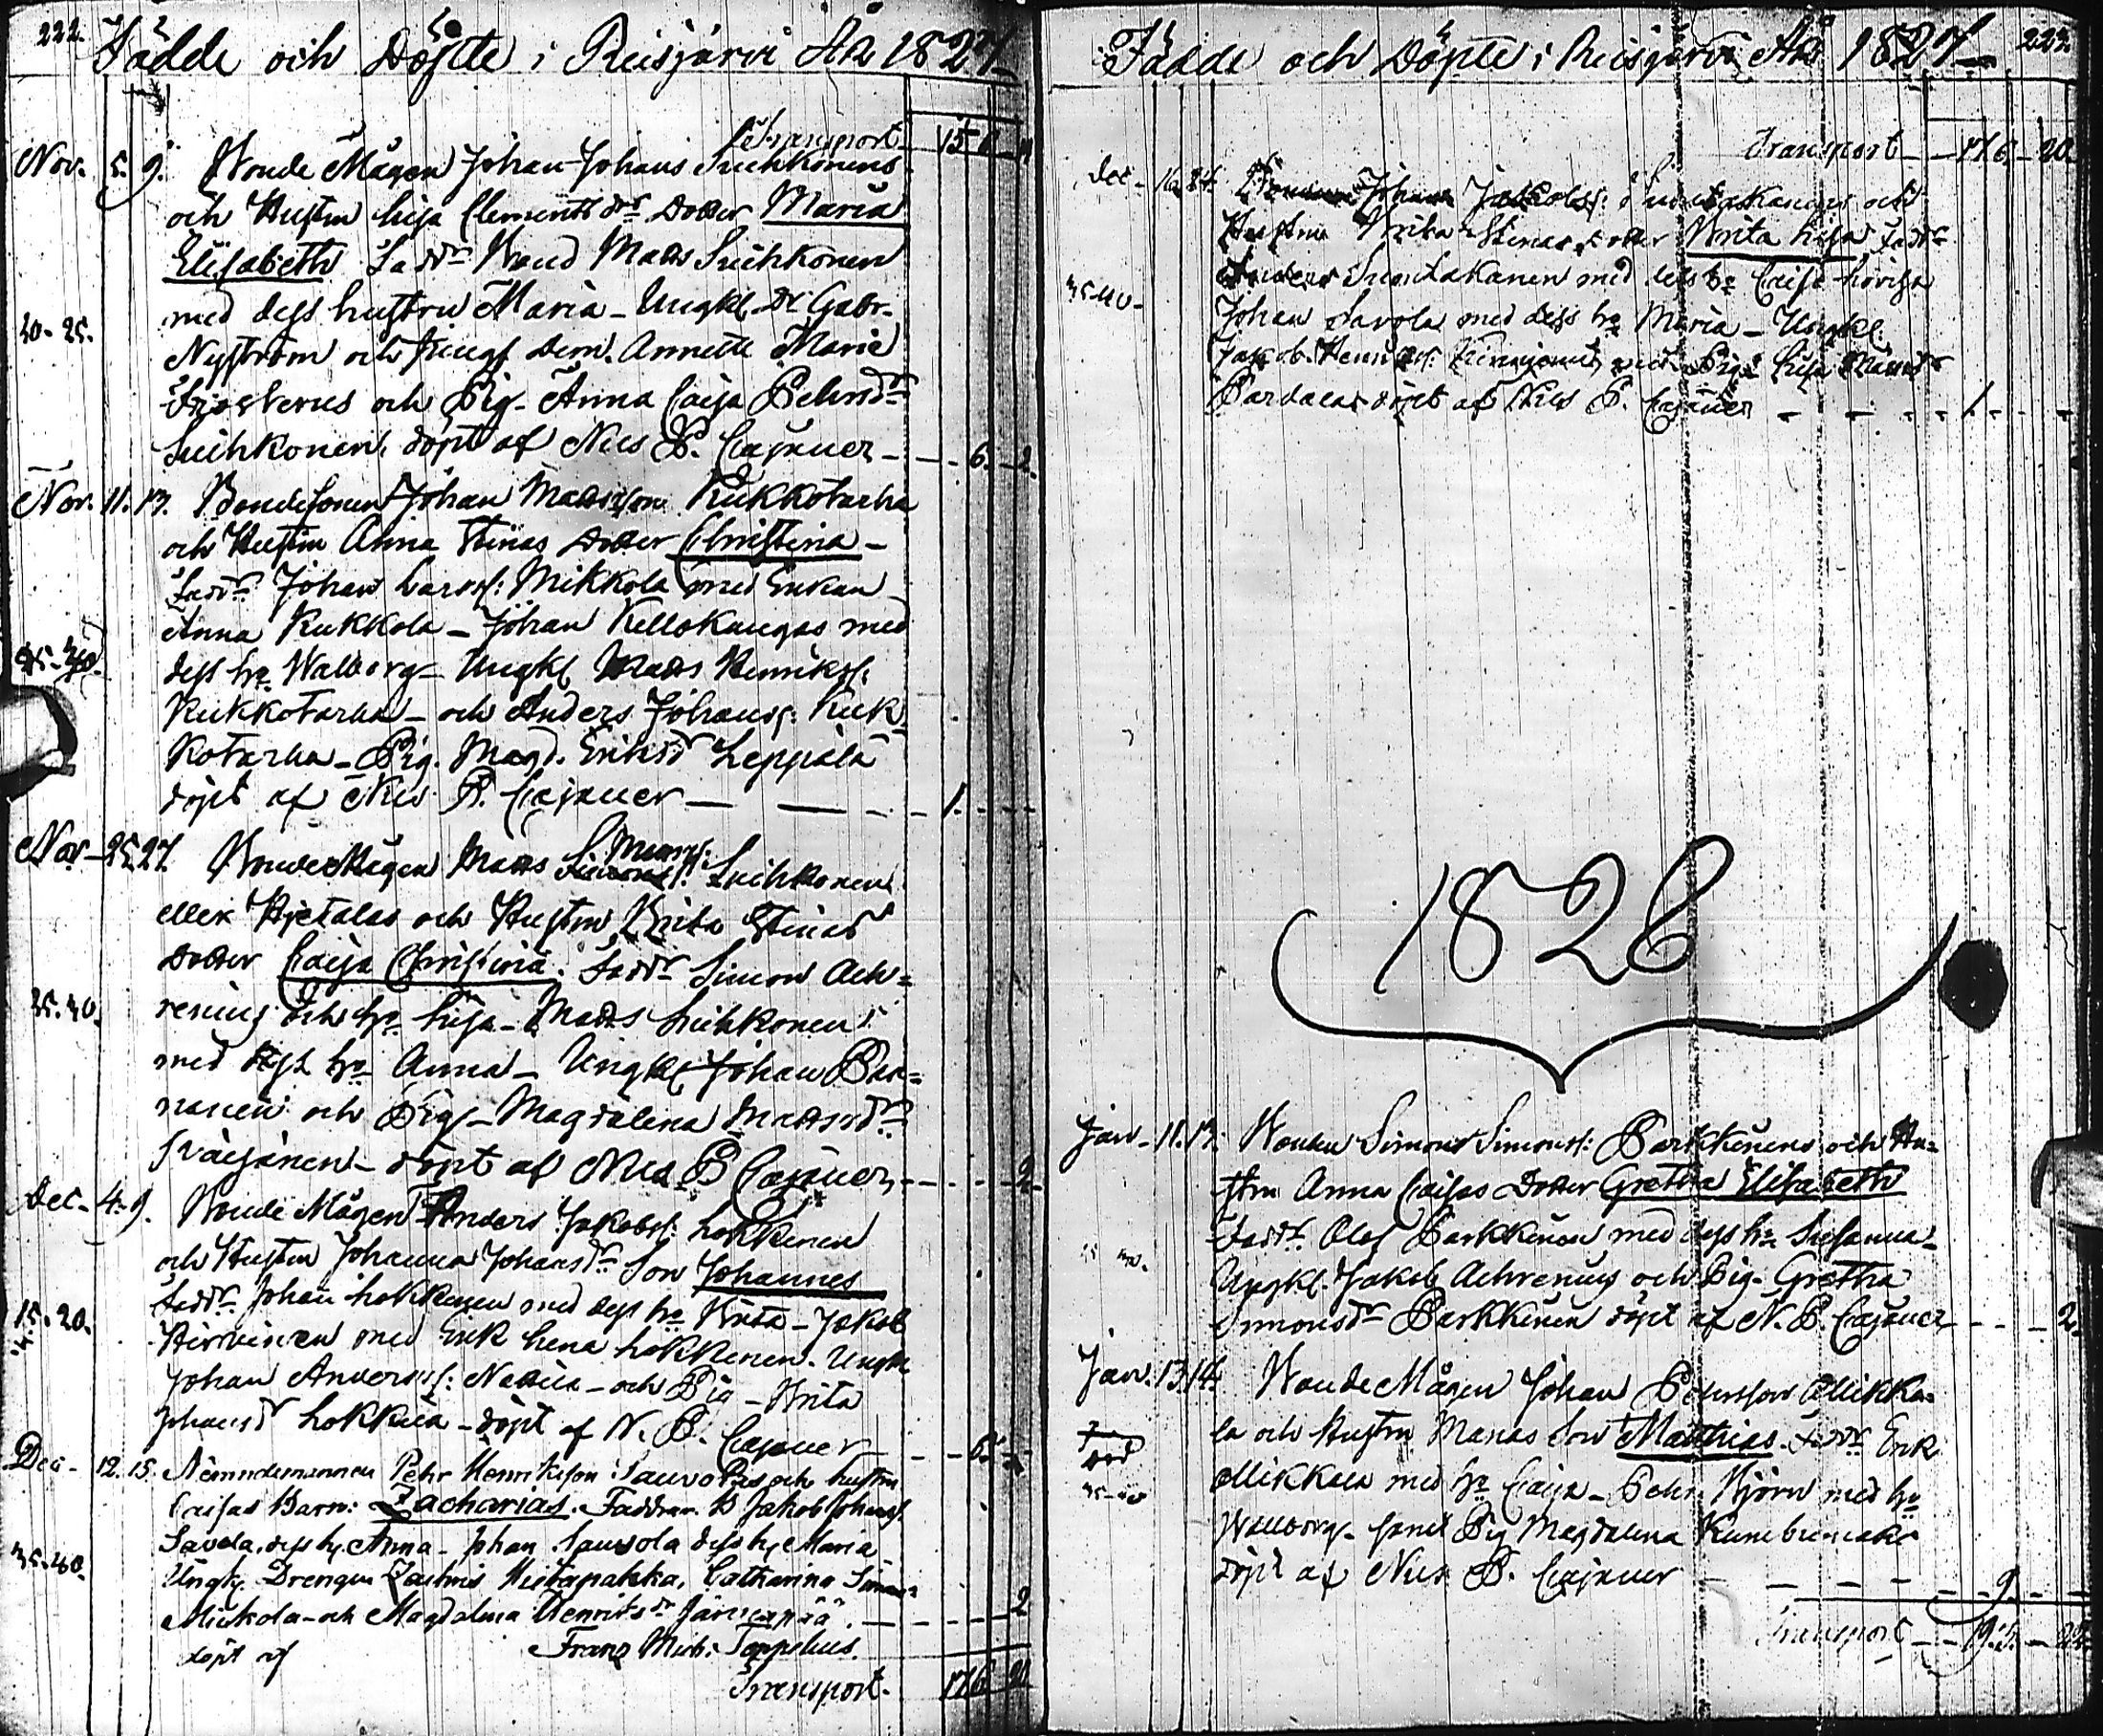 222.
Födde och Döpte i Reisjärvi Åhr 1827
Transport 
Nov. 5. 9. Bonde Mågen Johan Johans Suihkonens
och Hustru Lisa Clementsdr Dotter Maria
Elisabeth Faddr Bond Matts Suihkonen
med dess hustru Maria - Ungkl. Dl Gabr.
20-25.
Nyström och Jungf Dem. Annette Marie
Frosterus och Pig. Anna Caisa Pehrsdr
Suihkonen, döpt af Nils P. Cajaner - 6. 2
Nov. 11. 13. Bondesonen Johan Mattsson Kukkotarha
och Hustru Anna Stinas Dotter Christina -
Faddr Johan Larss: Mikkola med Enkan
Anna Kukkola - Johan Kellokangas med
35-40.
dess ho Walborg - Ungkl Matts Henrikss:
Kukkotarha - och Anders Johanss: Kuk
kotarha - Pig. Magd. Eriksdr Leppälä
döpt af Nils P. Cajaner - 1.
Nov - 25. 27. Bonde Mågen Matts Suihkonen
eller Hietalas och Hustru Brita Stinas
Dotter Caisa Christina. Faddr Simon Ach=
35. 40.
renius och ho Lisa - Matts Suihkonen
med dess ho Anna - Ungkl Johan Paa=
nanen och Pig - Magdalena Mattsdr
Väisänen - döpt af Nils P Cajaner - 2
Dec - 4. 9. Bonde Mågen Anders Jakobss: Lokkinen
och Hustru Johanna Johansdr Son Johannes
Faddr Johan Lokkinen med dess ho Brita - Jakob
15. 20.
Hirvinen med Enk Lena Lokkinen. Ungkl
Johan Anderss: - och Pig - Brita
Johansdr Lokkila - döpt af N. P. Cajaner - 6.
Dec - 12. 15. Nämndemannen Pehr Henriksson och hustru
Caisas Barn: Zacharias. Faddrar. B Jakob Johanss.
Savola, dess h. Anna - Johan Savola dess h. Maria
35-40.
Ungk. Drengen Zachris Hietapakka, Catharina
Mickola - och Magdalena Henriksdr Järvenpää. 2
döpt af Franz Mich: Toppelius.
Transport. 176 20
Födde och Döpte i Reisjärvi Åhr 1827 223.
Transport - 176 - 20.
Dec - 16. 24. Johan Jakobss: Suutakangas och
Hustru Brita Stinas dotter Brita Lisa Faddr
Anders Suutakanen med dess ho Caisa
35-40 -
Johan Savola med dess ho Maria - Ungkl.
Jakob Henrikss: med Pig: Lisa
döpt af Nils P. Cajaner - 1.
1828
Jan - 11. 13. Bonden Simon Simonss: Parkkinens och Hu=
stru Anna Caisas Dotter Gretha Elisabeth
Faddr. Olof Parkkinen med dess ho Susanna -
Ungkl. Jakob Achrenius och Pig - Gretha
Simonsdr Parkkinen döpt af N. P. Cajaner - 2.
Jan. 13. 14. Bonde Mågen Johan Pehrsson Mikko=
la och Hustru Marias Son Matthias. Faddr Erik
Mikkola med ho Caisa - Pehr Björn med ho
Walborg - samt Pig Magdalena
döpt af Nils P. Cajaner - 9.
Transport